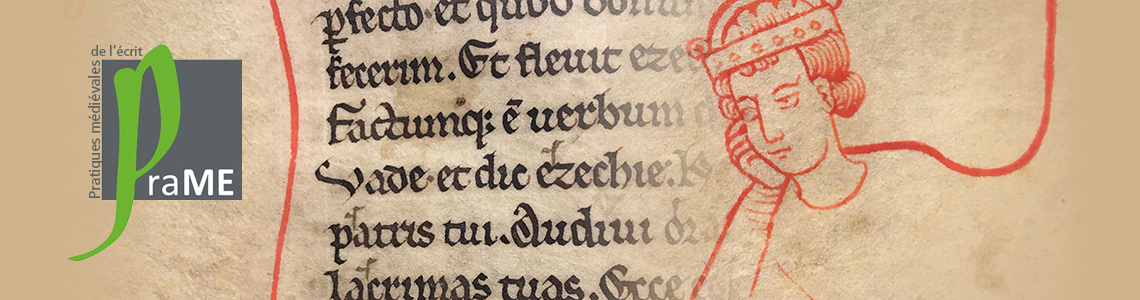 Pratiques médiévales
de l'écrit
praME
ꝑfecto· et quod bonum
fecerim. Et fleuit eze
Factumqꝫ ē uerbum
Vade· et dic ezechie:
patris tui. Audiui
lacrimas tuas. Ecce